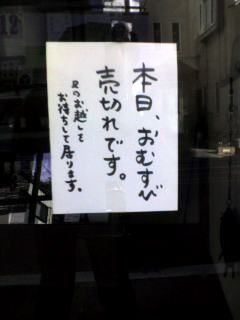 本日、おむすび
売切れです。
又のお越しを
お待ちして居ります。